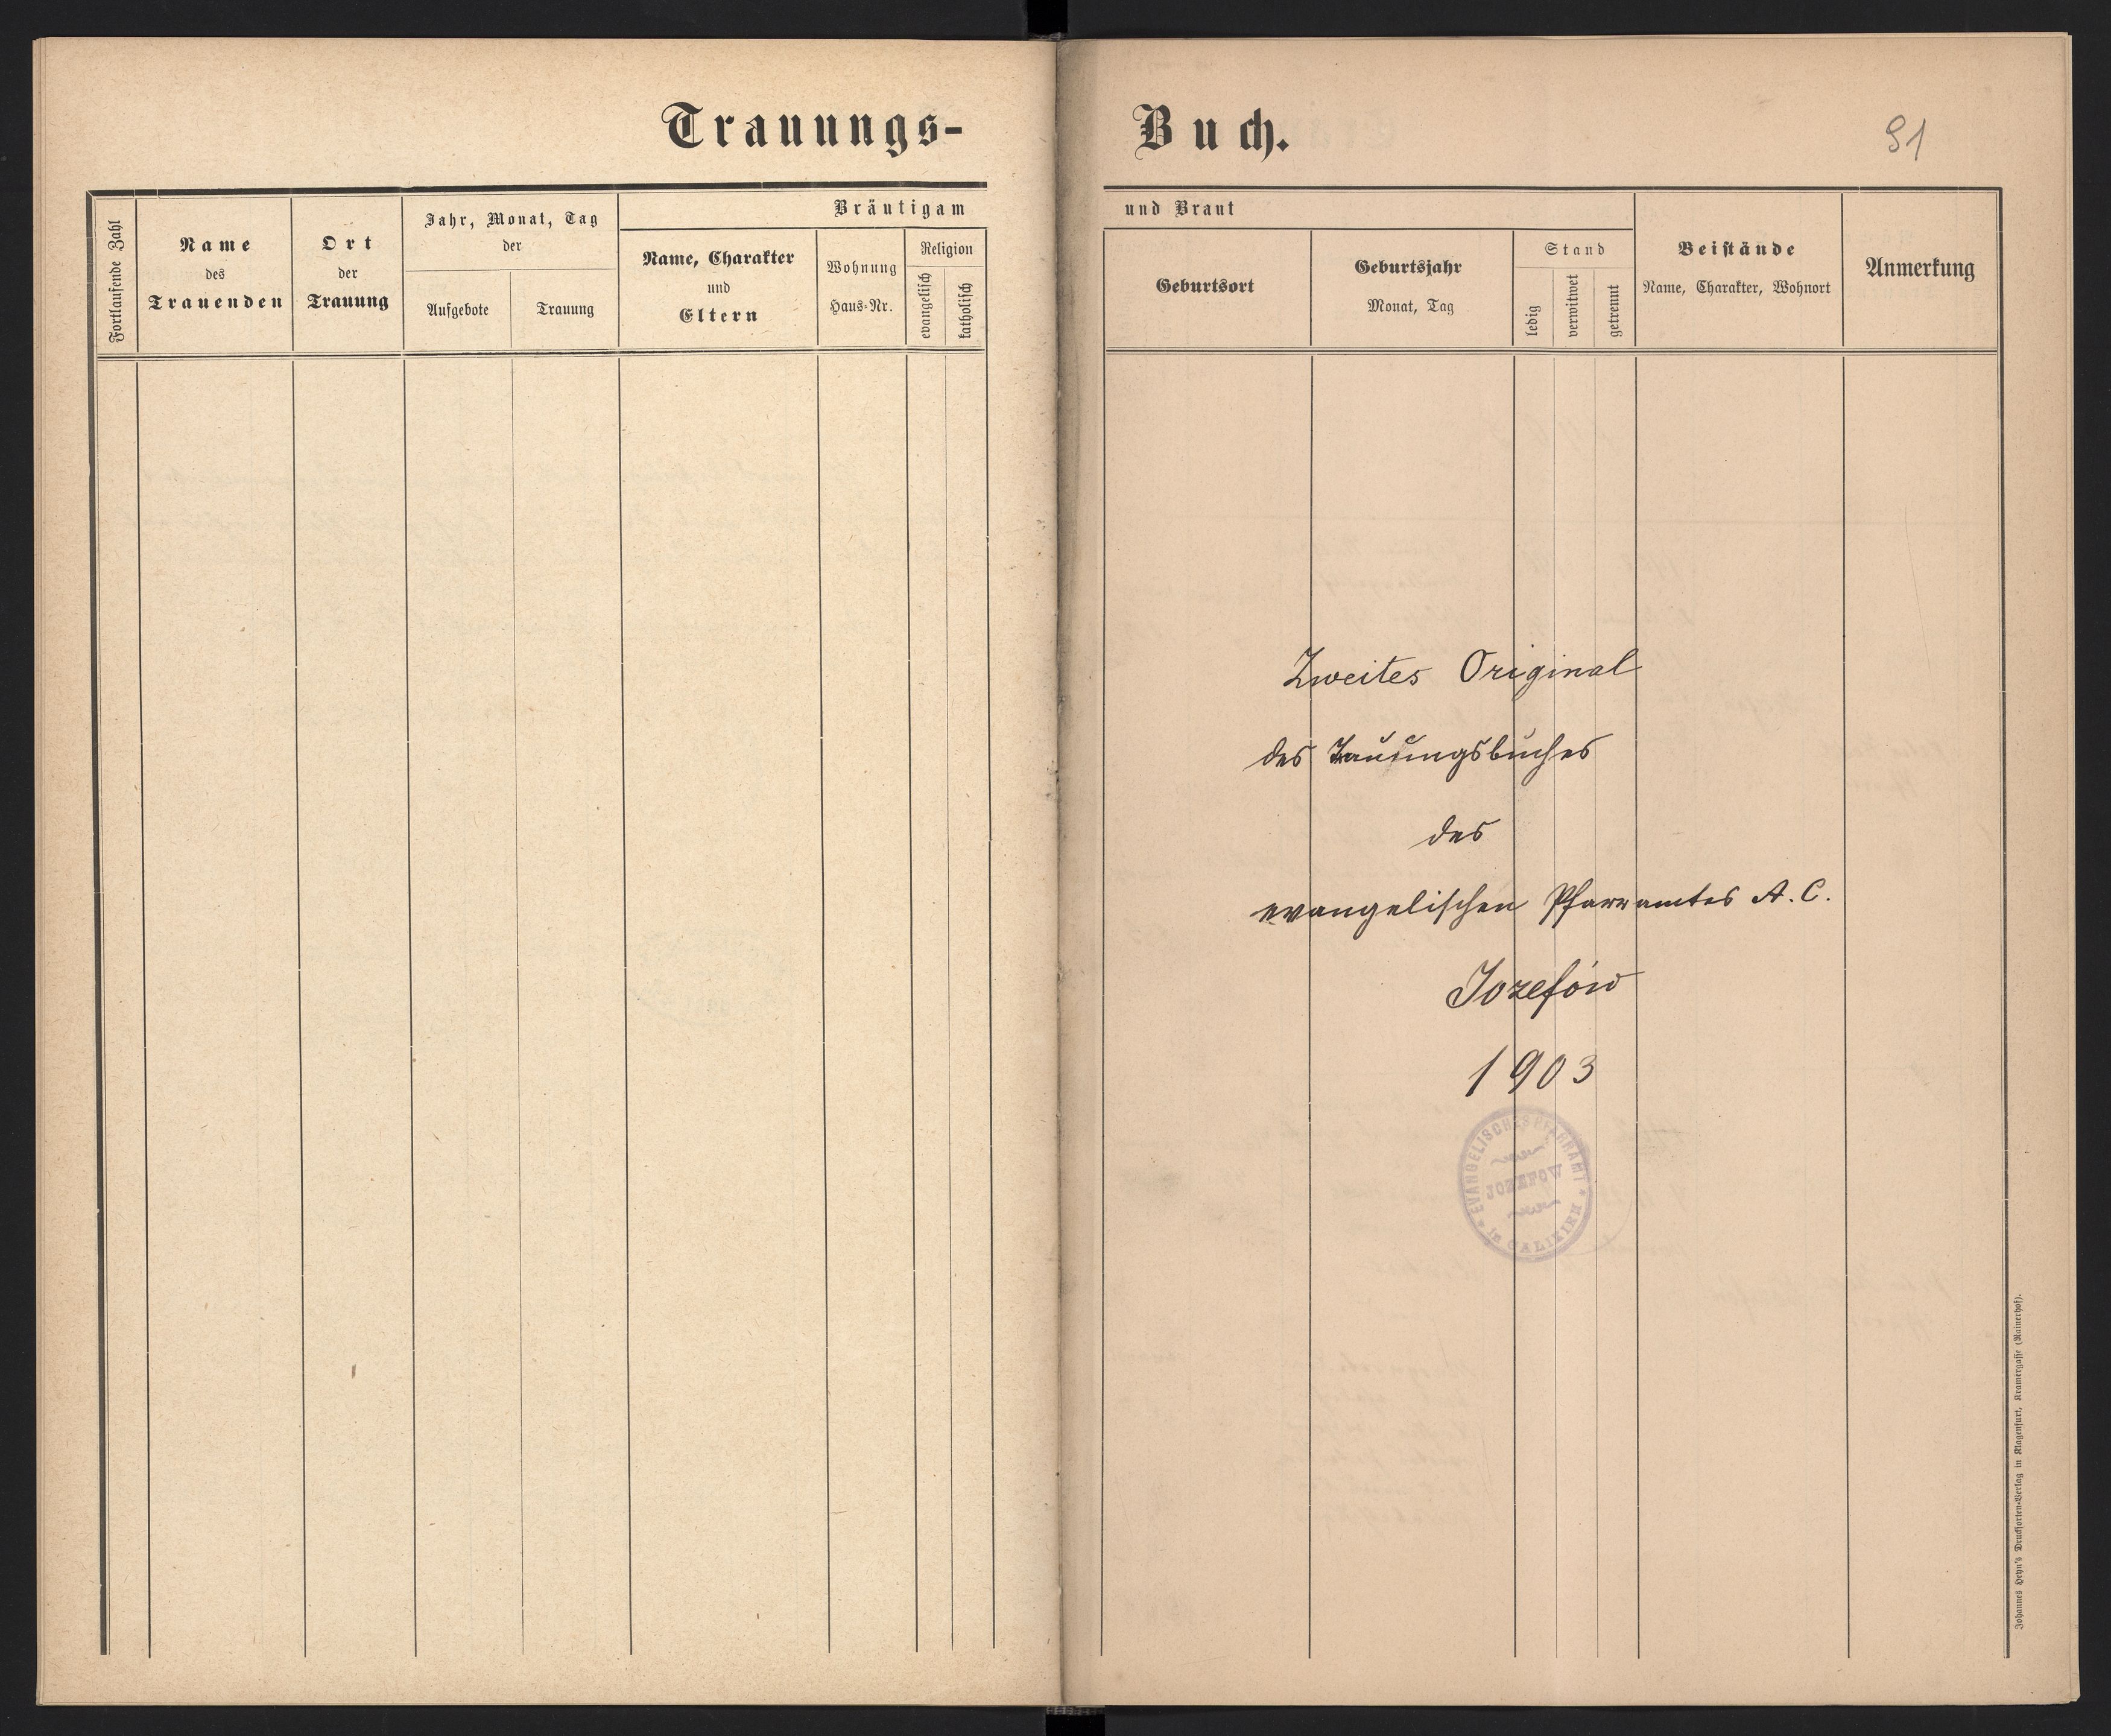 Trauungs-
Fortlaufende Zahl
Name
des
Trauenden
Ort
der
Trauung
Jahr, Monat, Tag
der
Aufgebote
Trauung
Bräutigam
Name, Charakter
und
Eltern
Wohnung
Haus-Nr.
Religion
evangelisch
katholisch
Buch.
91
und Braut
Geburtsort
Geburtsjahr
Monat, Tag
Stand
ledig
verwitwet
getrennt
Beistände
Name, Charakter, Wohnort
Anmerkung
Zweites Original
des Trauungsbuches
des
evangelischen Pfarramtes A. C.
Jozefów
1903
EVANGELISCHES PFARRAMT
JOZEFOW
in GALIZIEN
Johannes Heyn's Drucksorten-Verlag in Klagenfurt, Kramergasse (Rainerhof).